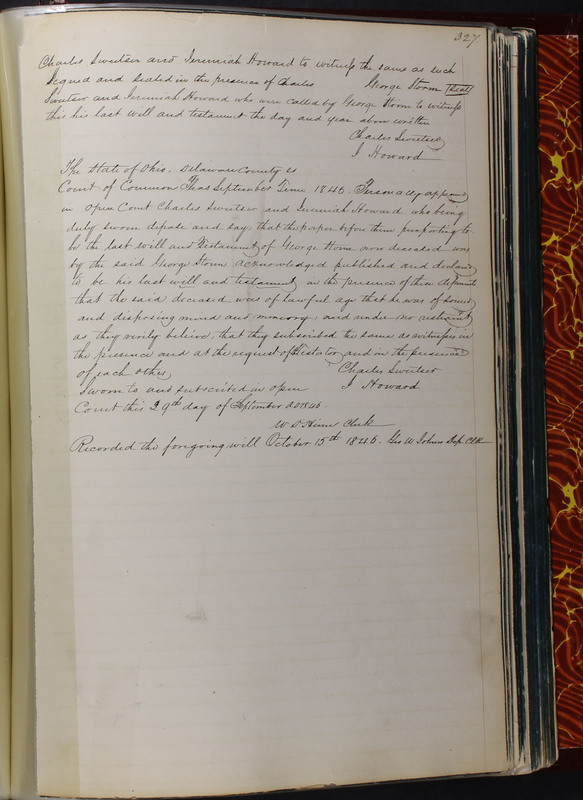 327
Charles Sweetser and Jeremiah Howard to witness the same as such
Signed and sealed in the presence of Charles George Storm Seal
Sweetser and Jeremiah Howard who were called by George Storm to witness
this his last will and testament the day and year above written
Charles Sweetser
J Howard
The State of Ohio. Delaware County ss
Court of Common Pleas September Time 1846. Personally appeared
in open Court Charles Sweetser and Jeremiah Howard who being
duly sworn depose and say, that the paper before them purporting to
be the last will and Testament of George Storm now deceased was
by the said George Storm acknowledged published and declared
to be his last will and testament in the presence of these deponents
that the said deceased was of lawful age that he was of sound
and disposing mind and memory, and under no restraint
as they verily believe, that they subscribed the same as witnesses in
the presence and at the request of Testator and in the presence
of each other, Charles Sweetser
Sworn to and subscribed in open J Howard
Court this 29th day of September AD 1846.
W D Heim Clerk
Recorded the foregoing will October 15th 1846. Geo W Johns Dep. Clk